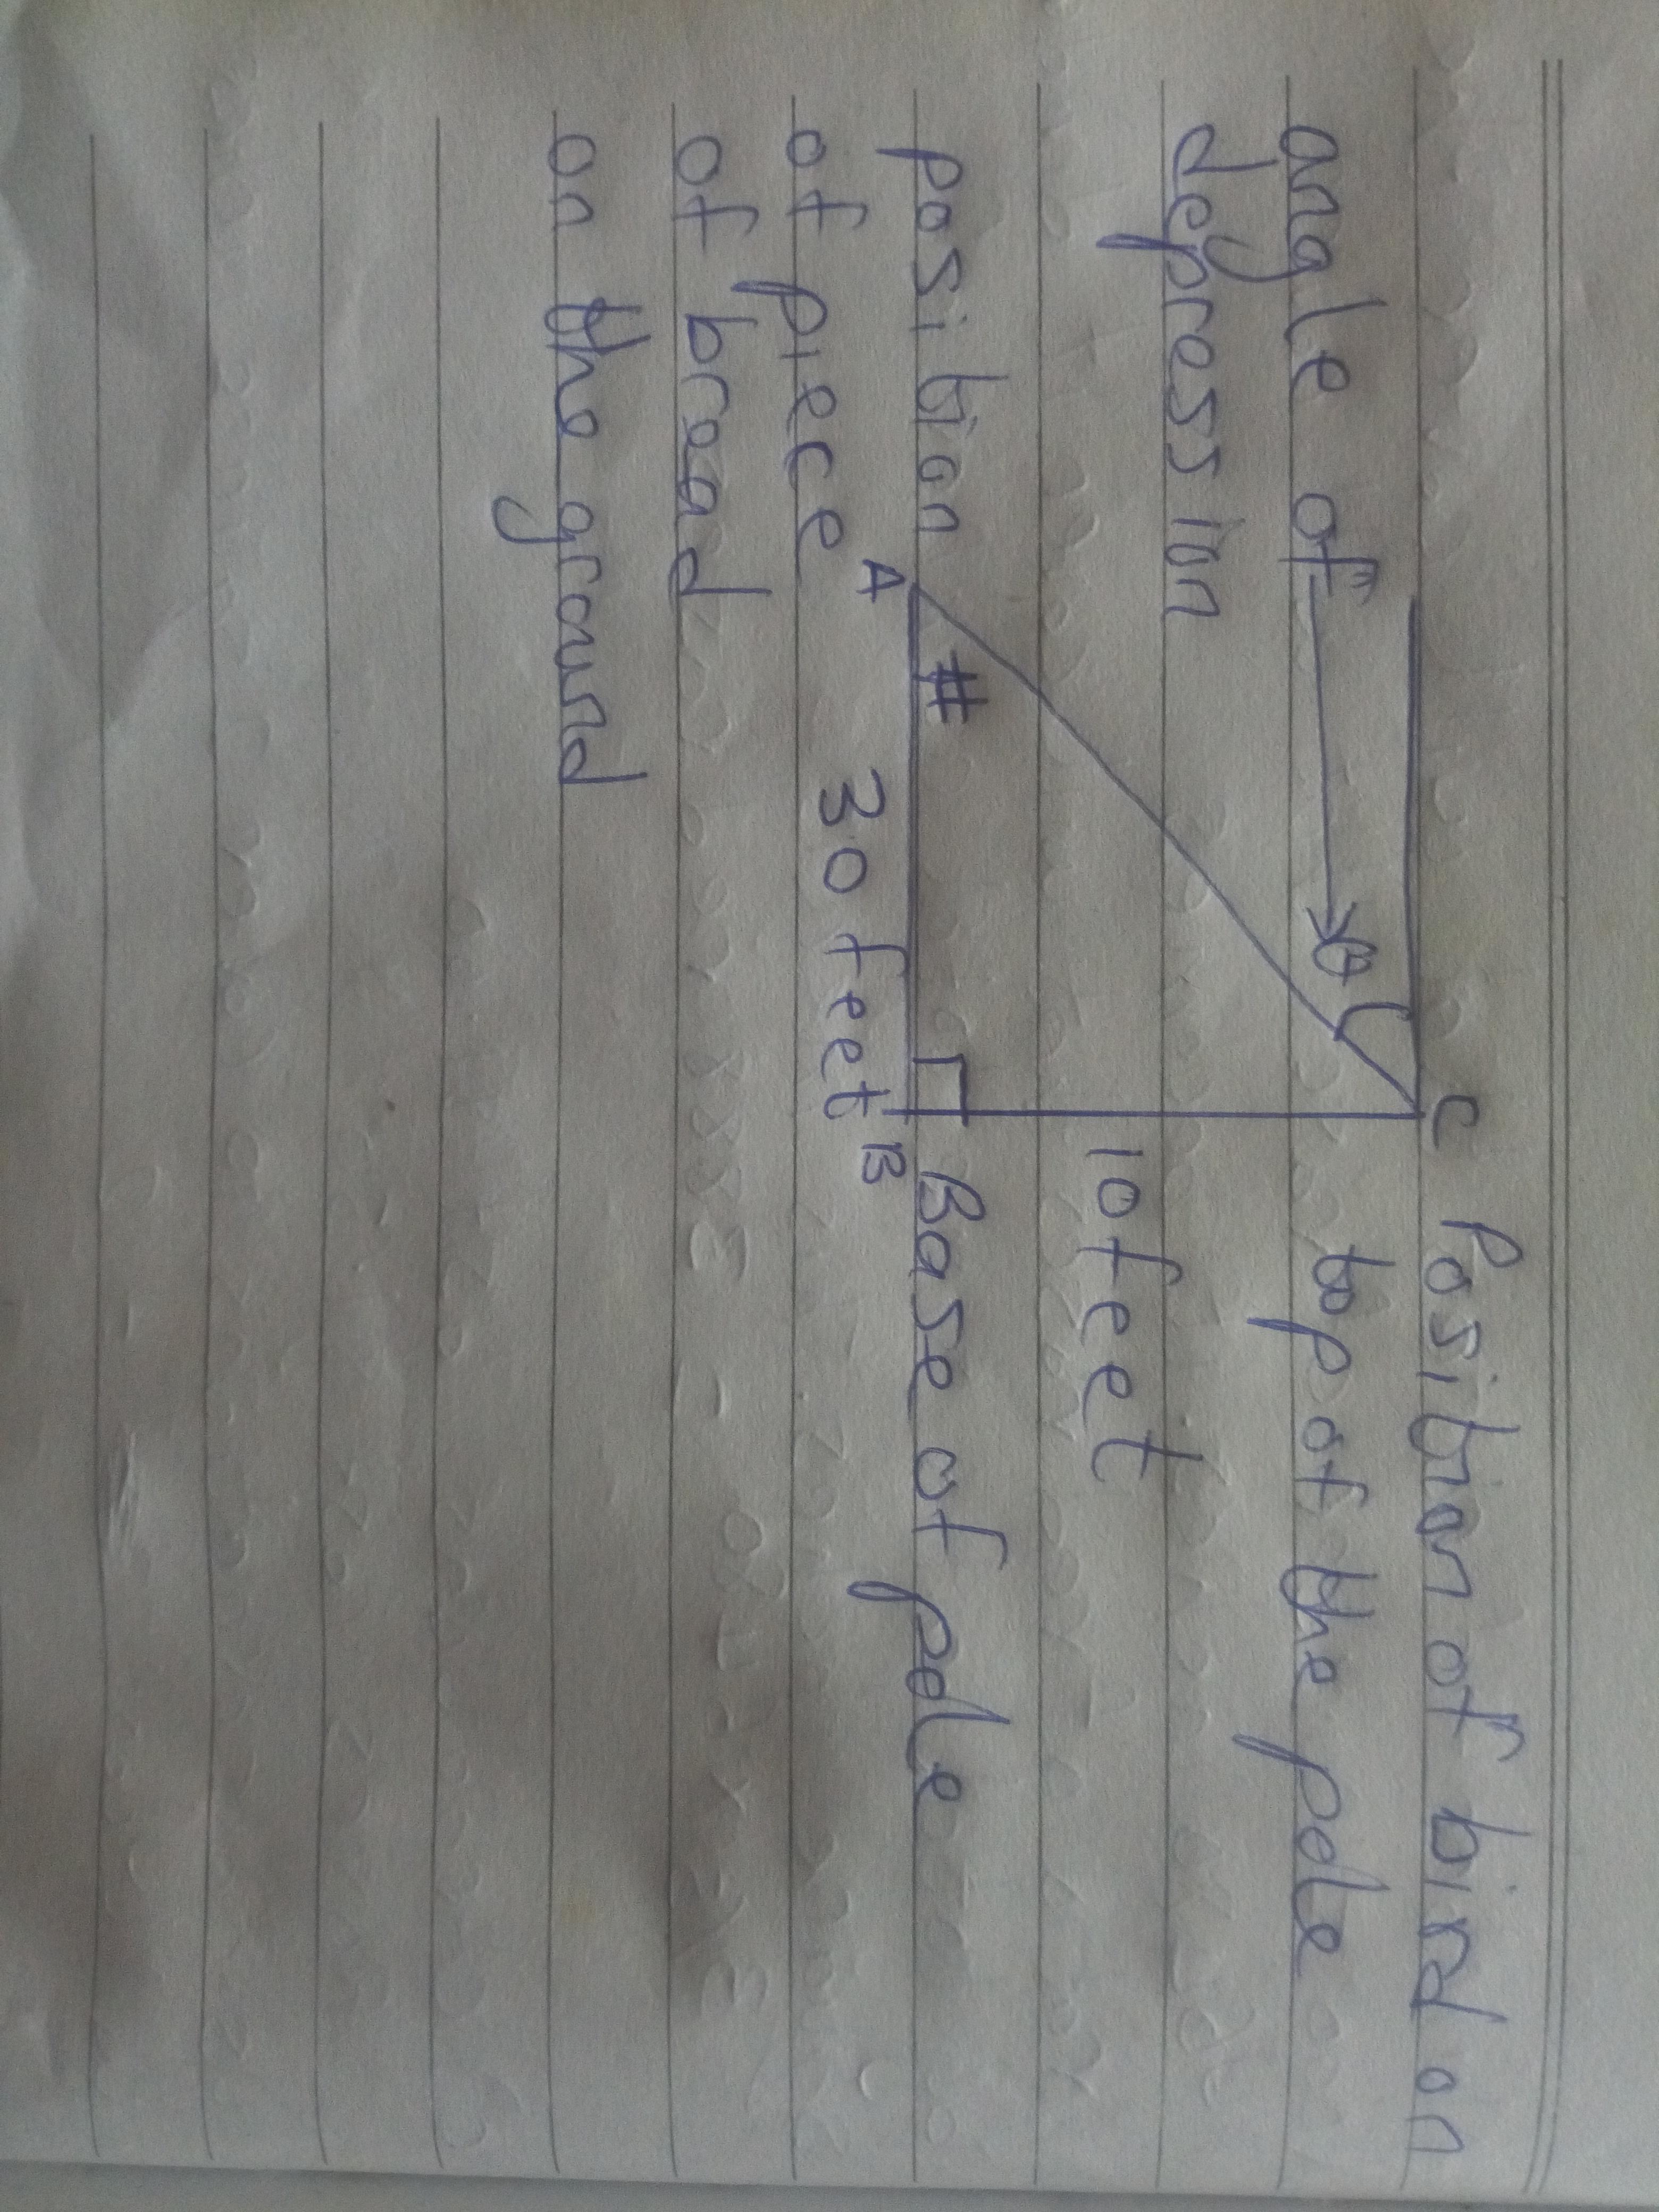 C Position of bird on
top of the pole
angle of → θ
depression
10 feet
position A B Base of pole
of piece 30 feet
of bread
on the ground